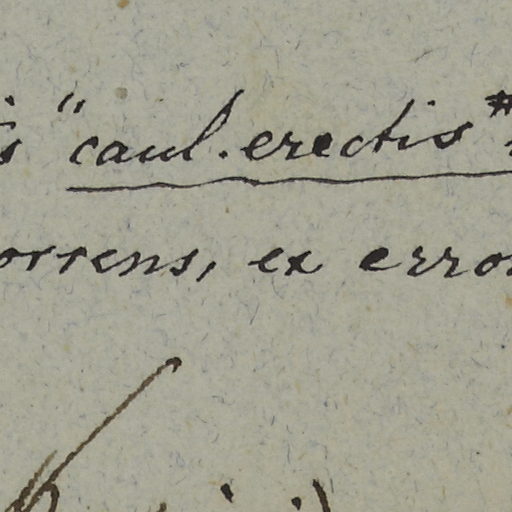 "caul. erectis"
orrens, ex error